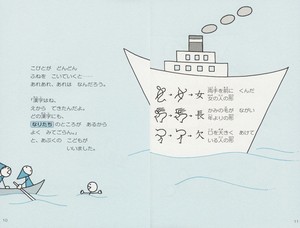 こびとが どんどん
ふねを こいでいくと——
あれあれ、あれは なんだろう。
「漢字はね、
えから できたんだよ。
どの漢字にも、
なりたちのところが あるから
よく みてごらん。」
と、あぶくの こどもが
いいました。
10
→ → 女 両手を前に くんだ
女の人の形
→ → 長 かみの毛が ながい
年よりの形
→ → 欠 口を大きく あけて
いる人の形
11